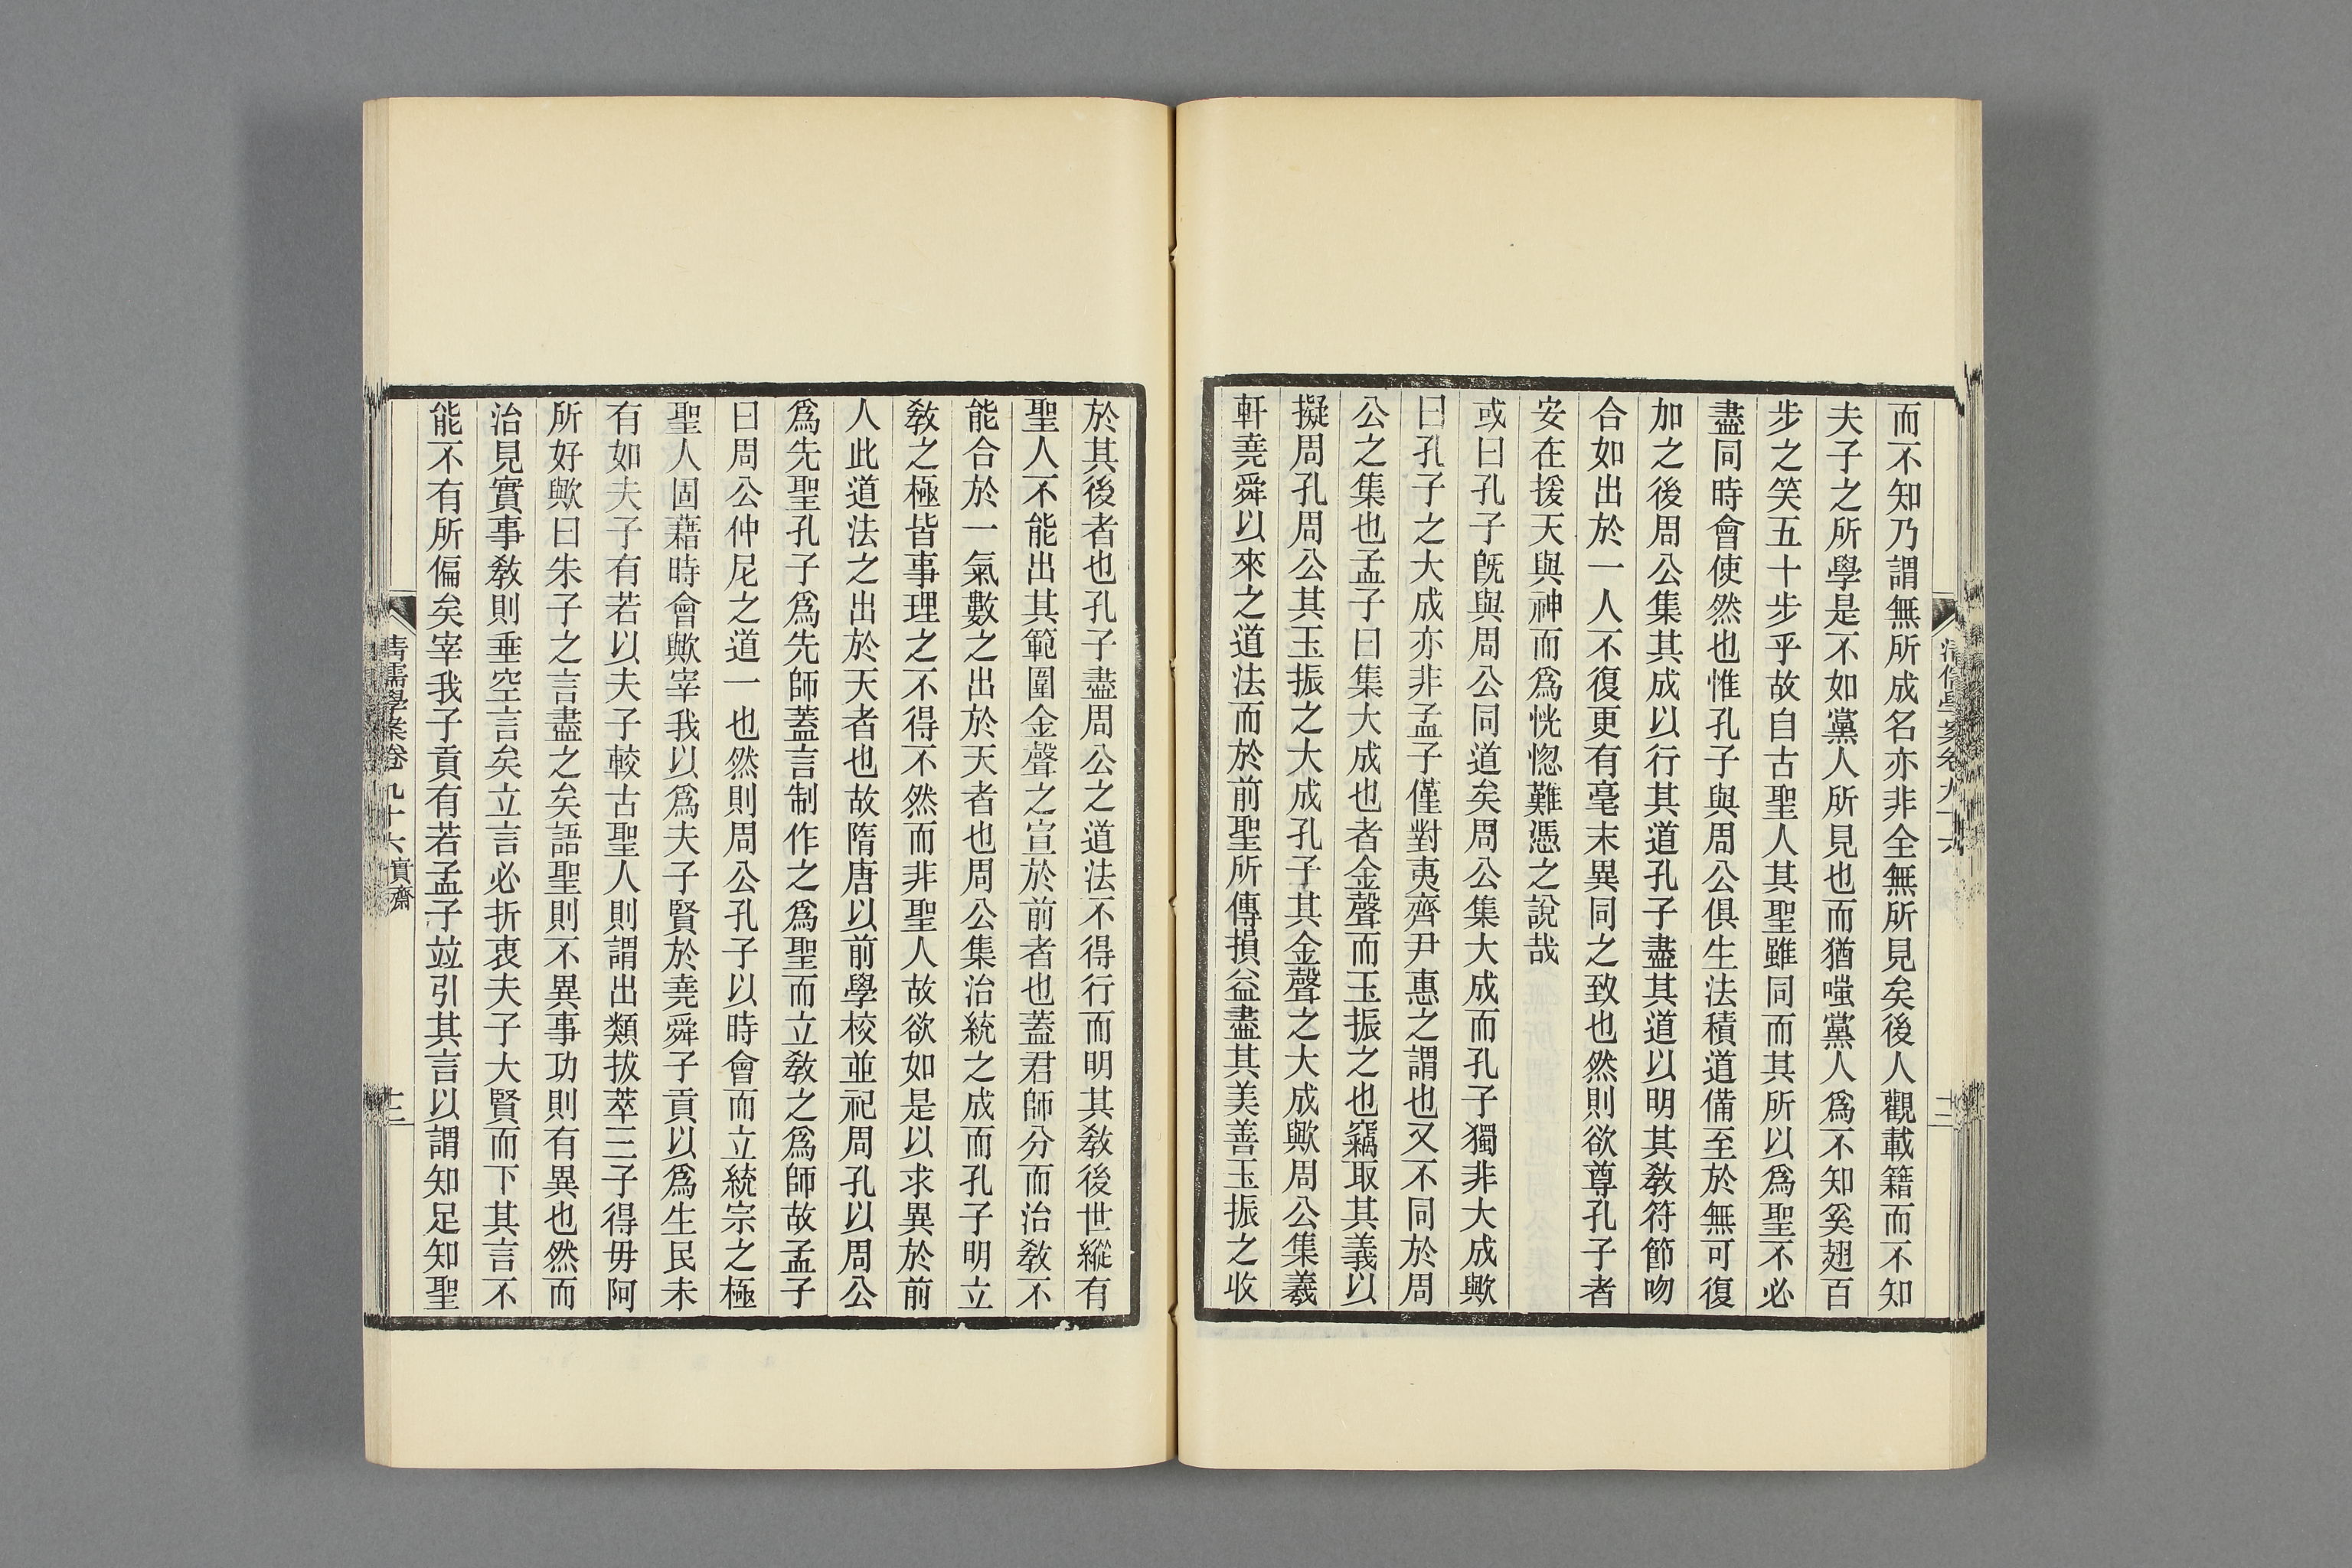 而不知乃謂無所成名亦非全無所見矣後人觀載籍而不知
夫子之所學是不如黨人所見也而猶嗤黨人爲不知奚翅百
步之笑五十步乎故自古聖人其聖雖同而其所以爲聖不必
盡同時會使然也惟孔子與周公俱生法積道備至於無可復
加之後周公集其成以行其道孔子盡其道以明其敎符節吻
合如出於一人不復更有毫末異同之致也然則欲尊孔子者
安在援天與神而爲恍惚難憑之說哉
或曰孔子旣與周公同道矣周公集大成而孔子獨非大成歟
曰孔子之大成亦非孟子僅對夷齊尹惠之謂也又不同於周
公之集也孟子曰集大成也者金聲而玉振之也竊取其義以
擬周孔周公其玉振之大成孔子其金聲之大成歟周公集羲
軒堯舜以來之道法而於前聖所傳損益盡其美善玉振之收
於其後者也孔子盡周公之道法不得行而明其敎後世縱有
聖人不能出其範圍金聲之宣於前者也蓋君師分而治敎不
能合於一氣數之出於天者也周公集治統之成而孔子明立
敎之極皆事理之不得不然而非聖人故欲如是以求異於前
人此道法之出於天者也故隋唐以前學校並祀周孔以周公
爲先聖孔子爲先師蓋言制作之爲聖而立敎之爲師故孟子
曰周公仲尼之道一也然則周公孔子以時會而立統宗之極
聖人固藉時會歟宰我以爲夫子賢於堯舜子貢以爲生民未
有如夫子有若以夫子較古聖人則謂出類拔萃三子得毋阿
所好歟曰朱子之言盡之矣語聖則不異事功則有異也然而
治見實事敎則垂空言矣立言必折衷夫子大賢而下其言不
能不有所偏矣宰我子貢有若孟子竝引其言以謂知足知聖
清儒學案卷九十六 實齋
十二